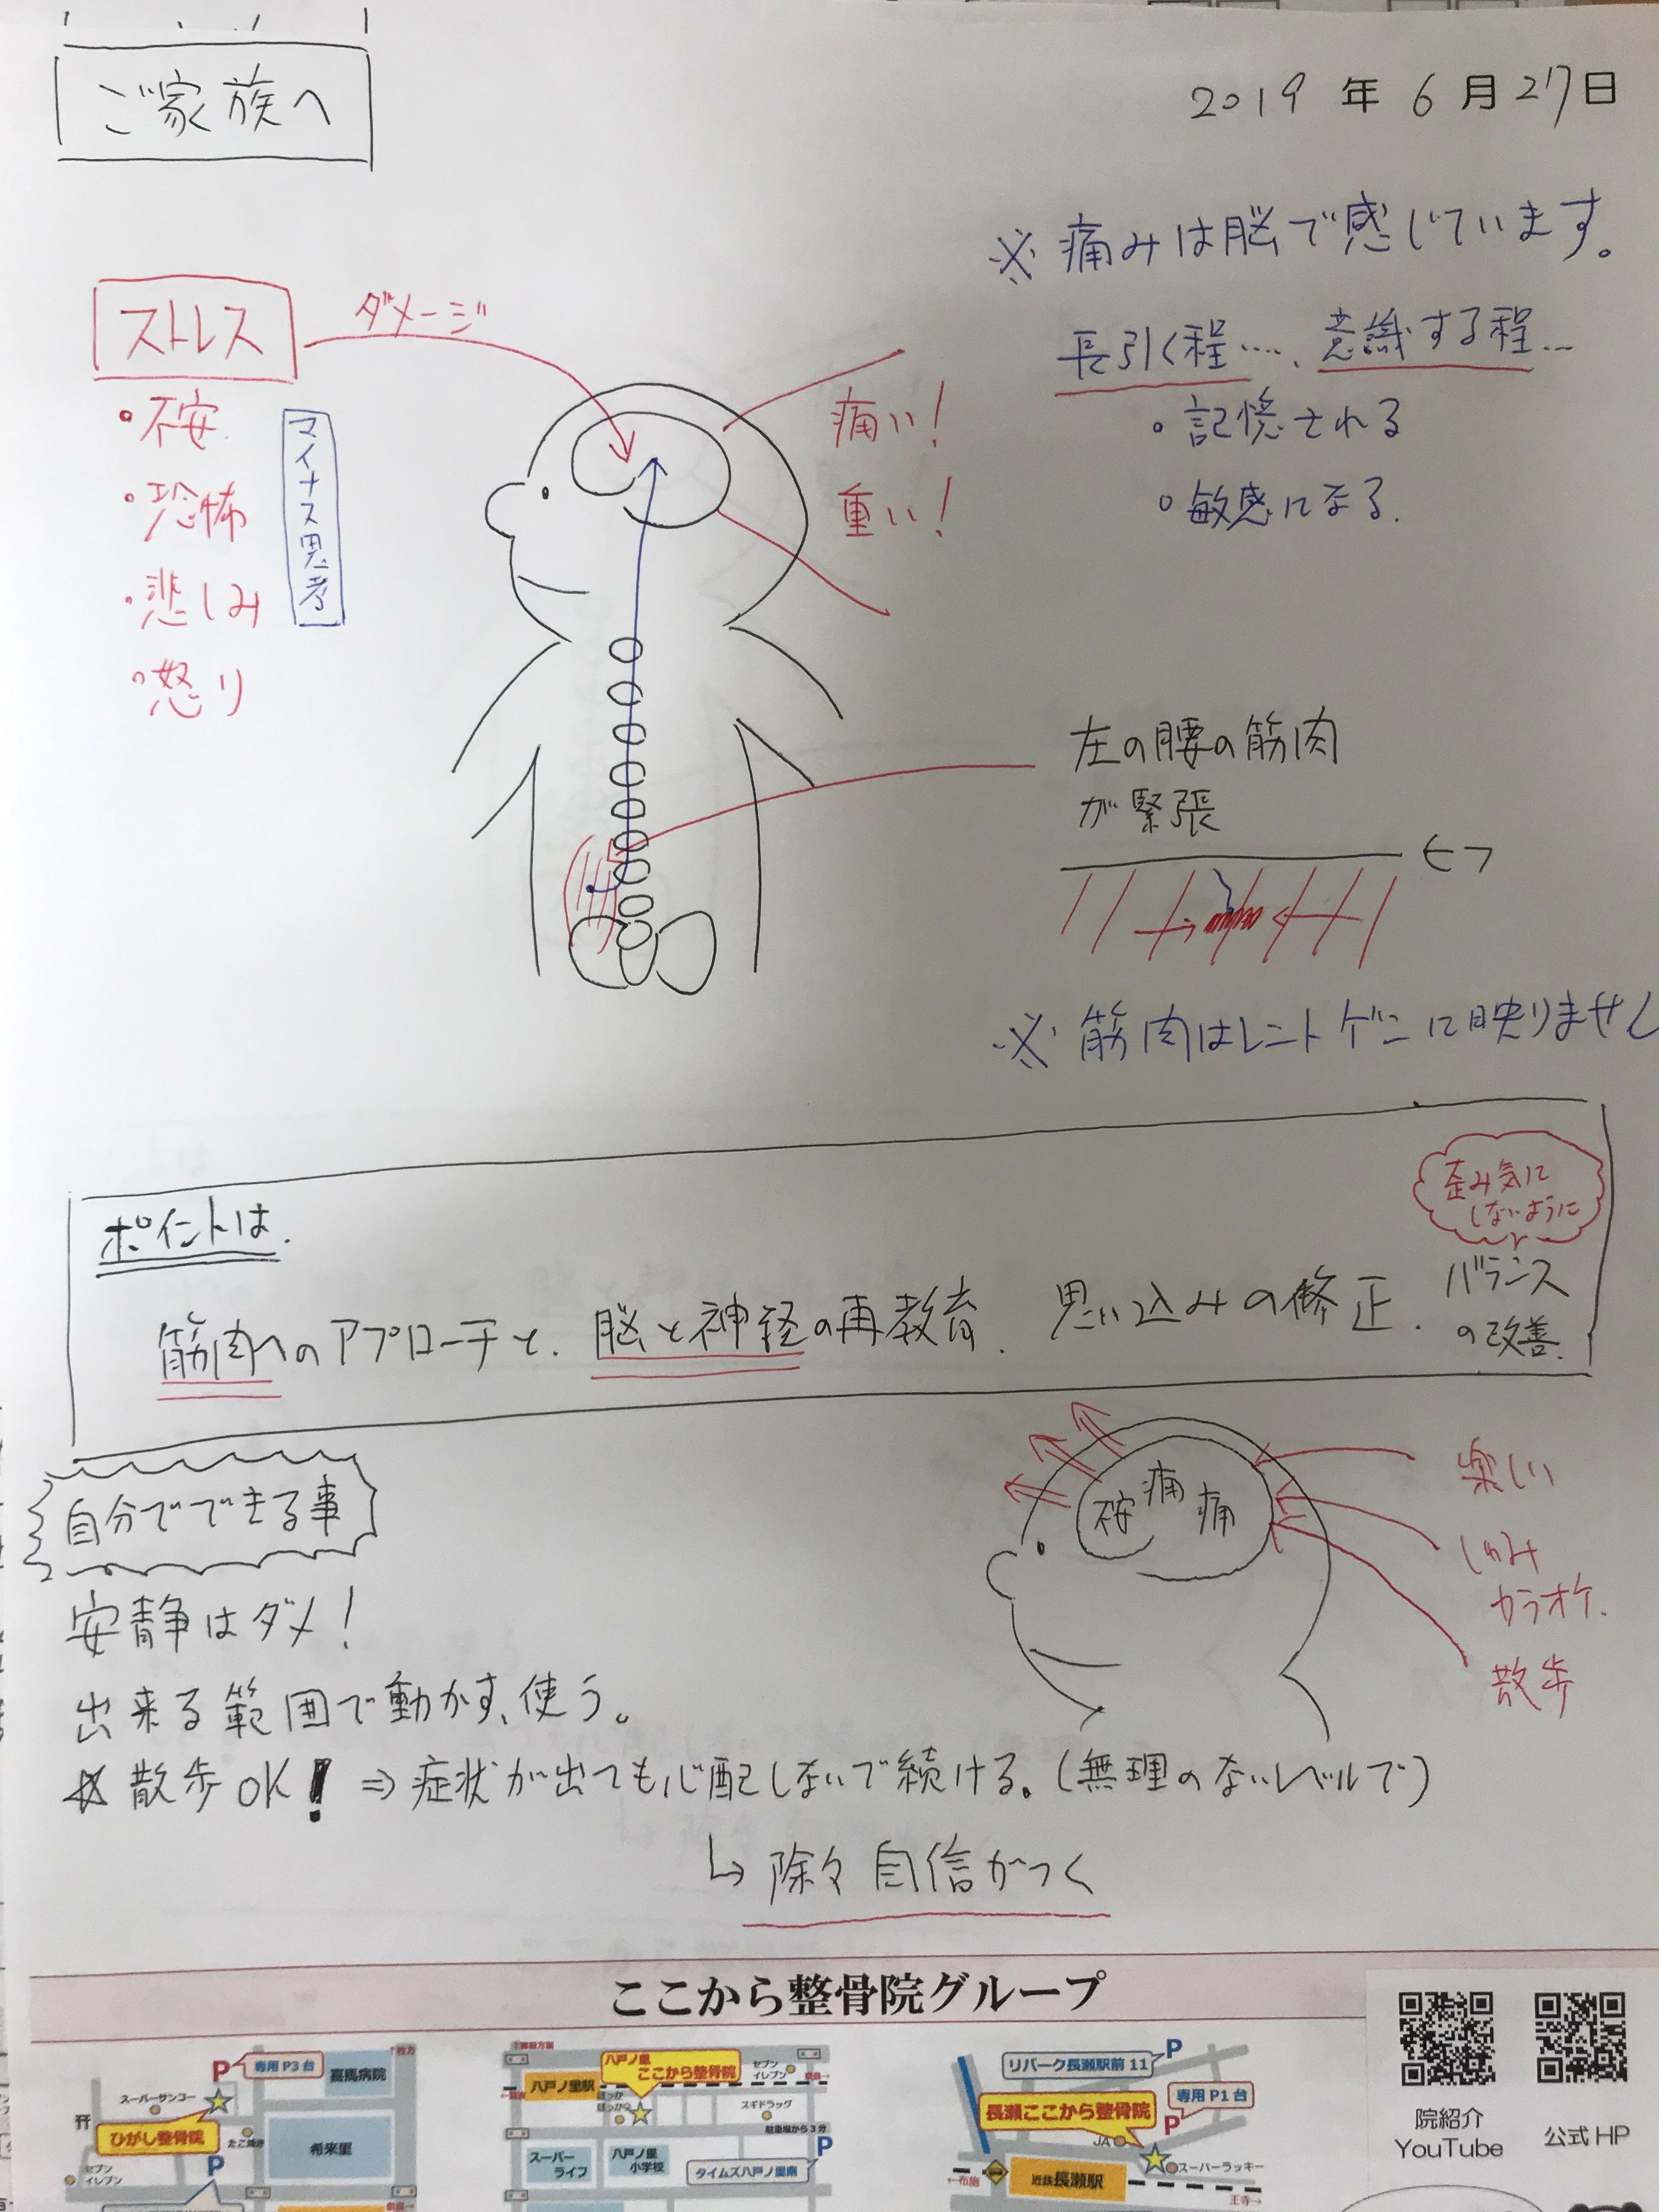 ご家族へ
2019 年 6 月 27 日
※ 痛みは脳で感じています。
長引く程…. 意識する程…
・記憶される
・敏感になる.
ストレス
ダメージ
・不安
・恐怖
・悲しみ
・怒り
マイナス思考
痛い!
重い!
左の腰の筋肉
が緊張
ヒフ
※ 筋肉はレントゲンに映りません
ポイントは.
歪み気に
しないように
筋肉へのアプローチと、脳と神経の再教育. 思い込みの修正.
バランス
の改善.
自分でできる事
安静はダメ!
出来る範囲で動かす、使う。
☆ 散歩OK! ⇒ 症状が出ても心配しないで続ける。(無理のないレベルで)
↳ 除々 自信がつく
不安 痛 痛
楽しい
しゅみ
カラオケ.
散歩
ここから整骨院グループ
専用 P3 台
P
喜馬病院
スーパーサンコー
ひがし整骨院
たこ焼き
希来里
セブン
イレブン
P
八戸ノ里
ここから整骨院
八戸ノ里駅
セブン
イレブン
ほっか
ほっか
スギドラッグ
駐車場から3分
P
スーパー
ライフ
八戸ノ里
小学校
タイムズ八戸ノ里南
リパーク長瀬駅前 11
P
専用 P1 台
P
長瀬ここから整骨院
JA
スーパーラッキー
←布施
近鉄長瀬駅
王寺→
院紹介
YouTube
公式 HP